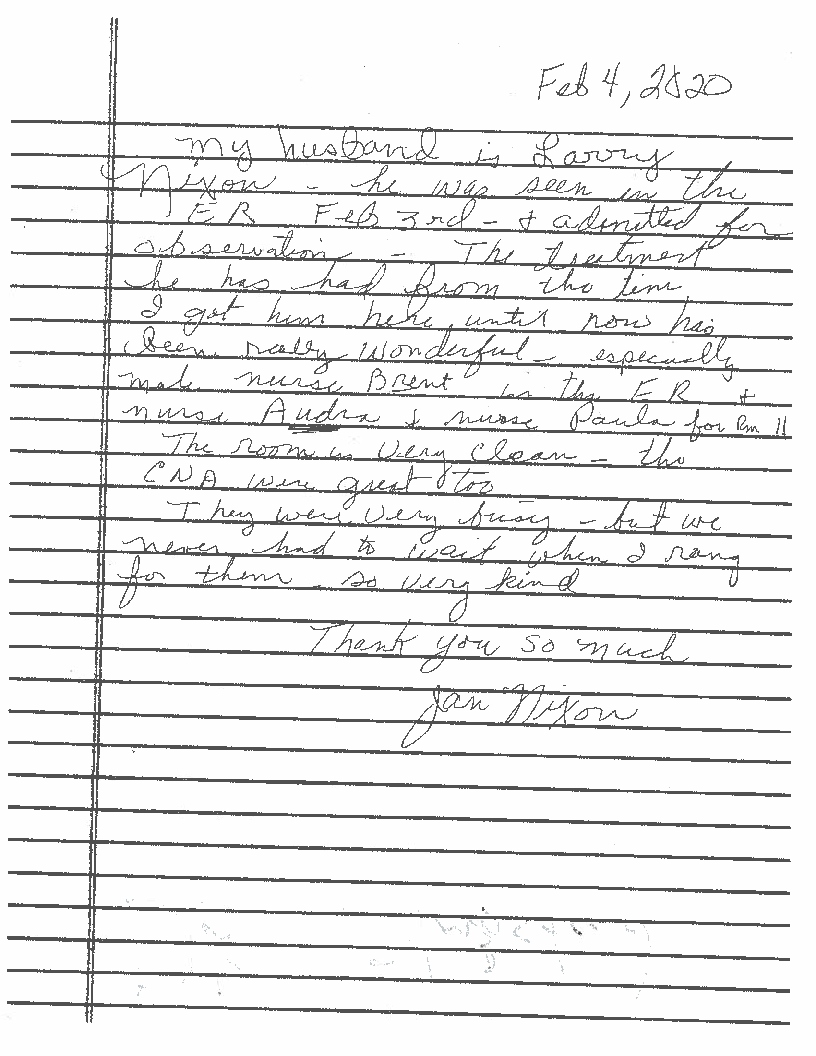 Feb 4, 2020
My husband is Larry
Nixon - he was seen in the
ER Feb 3rd - & admitted for
observation - The treatment
he has had from the time
I got him here until now has
been really wonderful - especially
male nurse Brent in the ER &
nurse Audra & nurse Paula for Rm 11
The room is very clean - the
CNA were great too
They were very busy - but we
never had to wait when I rang
for them - so very kind
Thank you so much
Jan Nixon